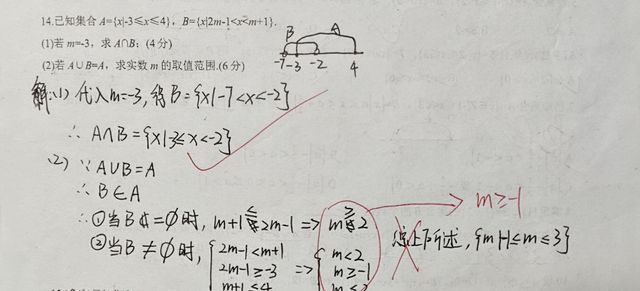 14.已知集合A={x|-3≤x≤4}, B={x|2m-1<x<m+1}.
(1)若m=-3, 求A∩B; (4分)
(2)若A∪B=A, 求实数m的取值范围.(6分)
B A
-7 -3 -2 4
解:(1) 代入m=-3, 得B={x|-7<x<-2}
∴ A∩B={x|-3≤x<-2}
(2) ∵A∪B=A
∴ B∈A
∴ ①当B=∅时, m+1≤2m-1 => m≥2
m≥-1
②当B≠∅时, { 2m-1<m+1 => { m<2
2m-1≥-3 m≥-1
m+1≤4 m≤3
综上所述, {m|-1≤m≤3}